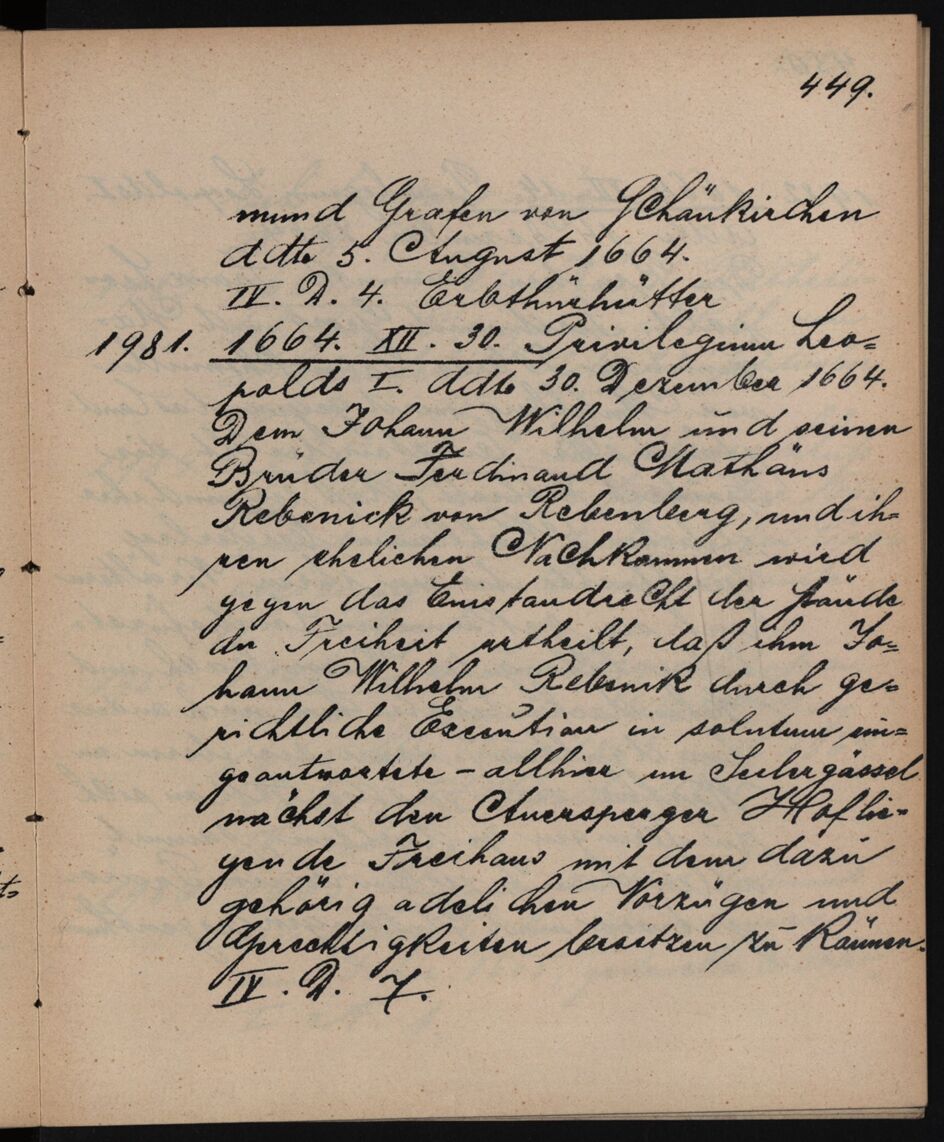 449.
mund Grafen von Schänkirchen
ddto 5. August 1664.
IV. D. 4. Erbthürhütter
1981. 1664. XII. 30. Privilegium Leo=
polds I. ddto 30. Dezember 1664.
Dem Johann Wilhelm und seinen
Brüder Ferdinand Mathäus
Rebenick von Rebenberg, und ih=
ren ehelichen Nachkommen wird
gegen das Einstandrecht der Stände
die Freiheit ertheilt, daß ihm Jo=
hann Wilhelm Rebenik durch ge=
richtliche Execution in solutum ein=
geantwortete – allhier im Seilergässel
nächst den Auersperger Hof lie=
gende Freihaus mit dem dazu
gehörig adelichen Vorzügen und
Gerechtigkeiten besitzen zu können.
IV. D. 7.